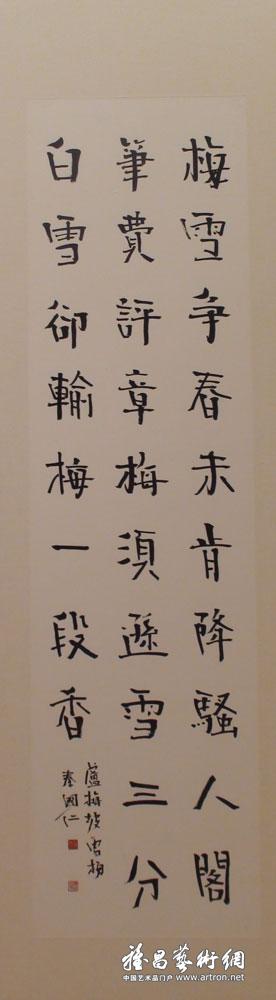 梅雪争春未肯降騷人閣
筆費評章梅須遜雪三分
白雪卻輸梅一段香
盧梅坡雪梅
秦國仁
雅昌藝術網
中国艺术品门户 www.artron.net